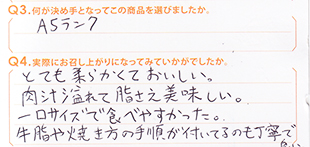 Q3.何が決め手となってこの商品を選びましたか。
A5ランク
Q4.実際にお召し上がりになってみていかがでしたか。
とても柔らかくておいしい。
肉汁溢れて脂さえ美味しい。
一口サイズで食べやすかった。
牛脂や焼き方の手順が付いてるのも丁寧で